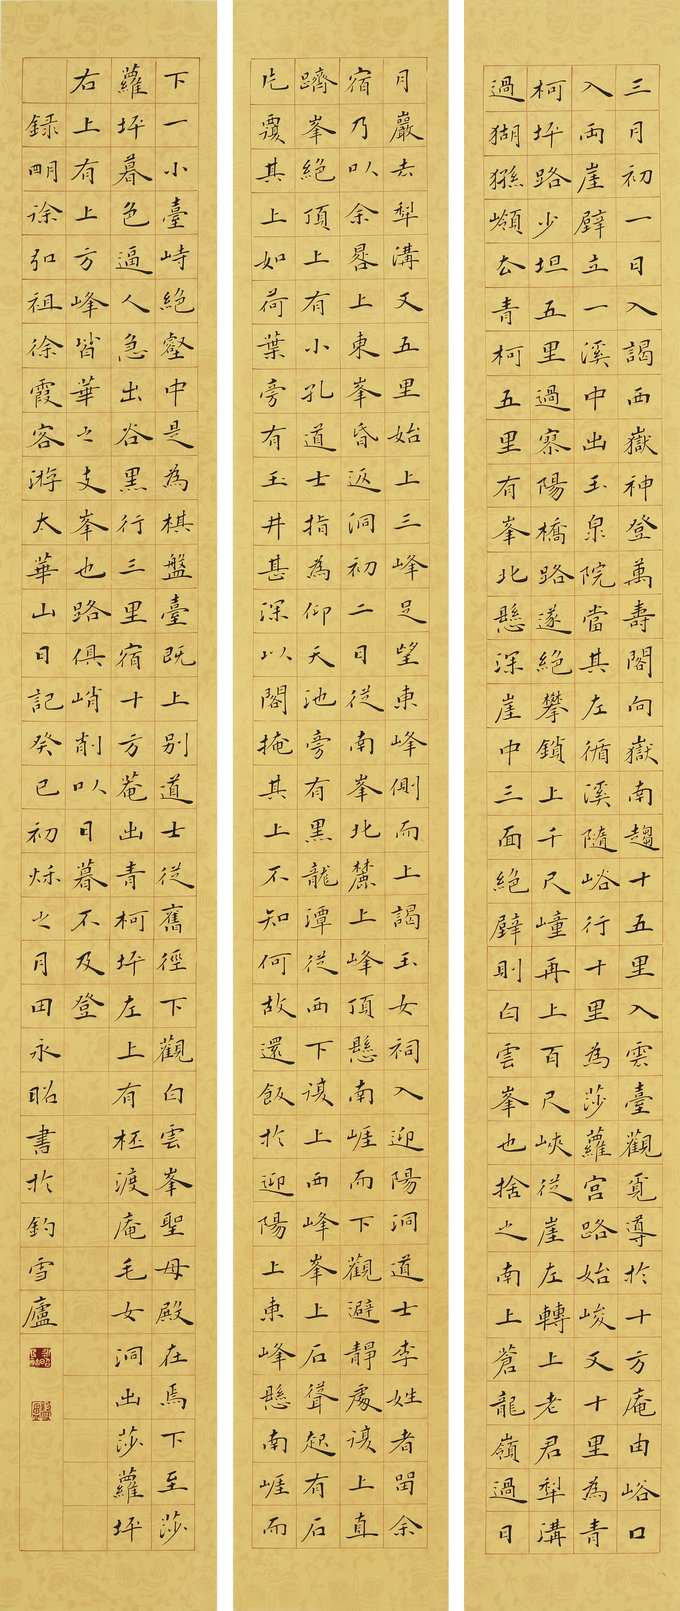 三月初一日入謁西嶽神登萬壽閣向嶽南趨十五里入雲臺觀覓導於十方庵由峪口
入兩崖壁立一溪中出玉泉院當其左循溪隨峪行十里為莎蘿宮路始峻又十里為青
柯坪路少坦五里過寥陽橋路遂絕攀鎖上千尺㠉再上百尺峽從崖左轉上老君犁溝
過猢猻嶺去青柯五里有峯北懸深崖中三面絕壁則白雲峯也捨之南上蒼龍嶺過日
月巖去犁溝又五里始上三峰足望東峰側而上謁玉女祠入迎陽洞道士李姓者留余
宿乃以余晷上東峯昏返洞初二日從南峯北麓上峰頂懸南崕而下觀避靜處復上直
躋峯絕頂上有小孔道士指為仰天池旁有黑龍潭從西下復上西峰峯上石聳起有石
片覆其上如荷葉旁有玉井甚深以閣掩其上不知何故還飯於迎陽上東峰懸南崕而
下一小臺峙絕壑中是為棋盤臺既上別道士從舊徑下觀白雲峯聖母殿在焉下至莎
蘿坪暮色逼人急出谷黑行三里宿十方菴出青柯坪左上有柸渡庵毛女洞出莎蘿坪
右上有上方峰皆華之支峯也路俱峭削以日暮不及登
録明徐弘祖徐霞客游太華山日記癸巳初秌之月田永昭書於釣雪廬